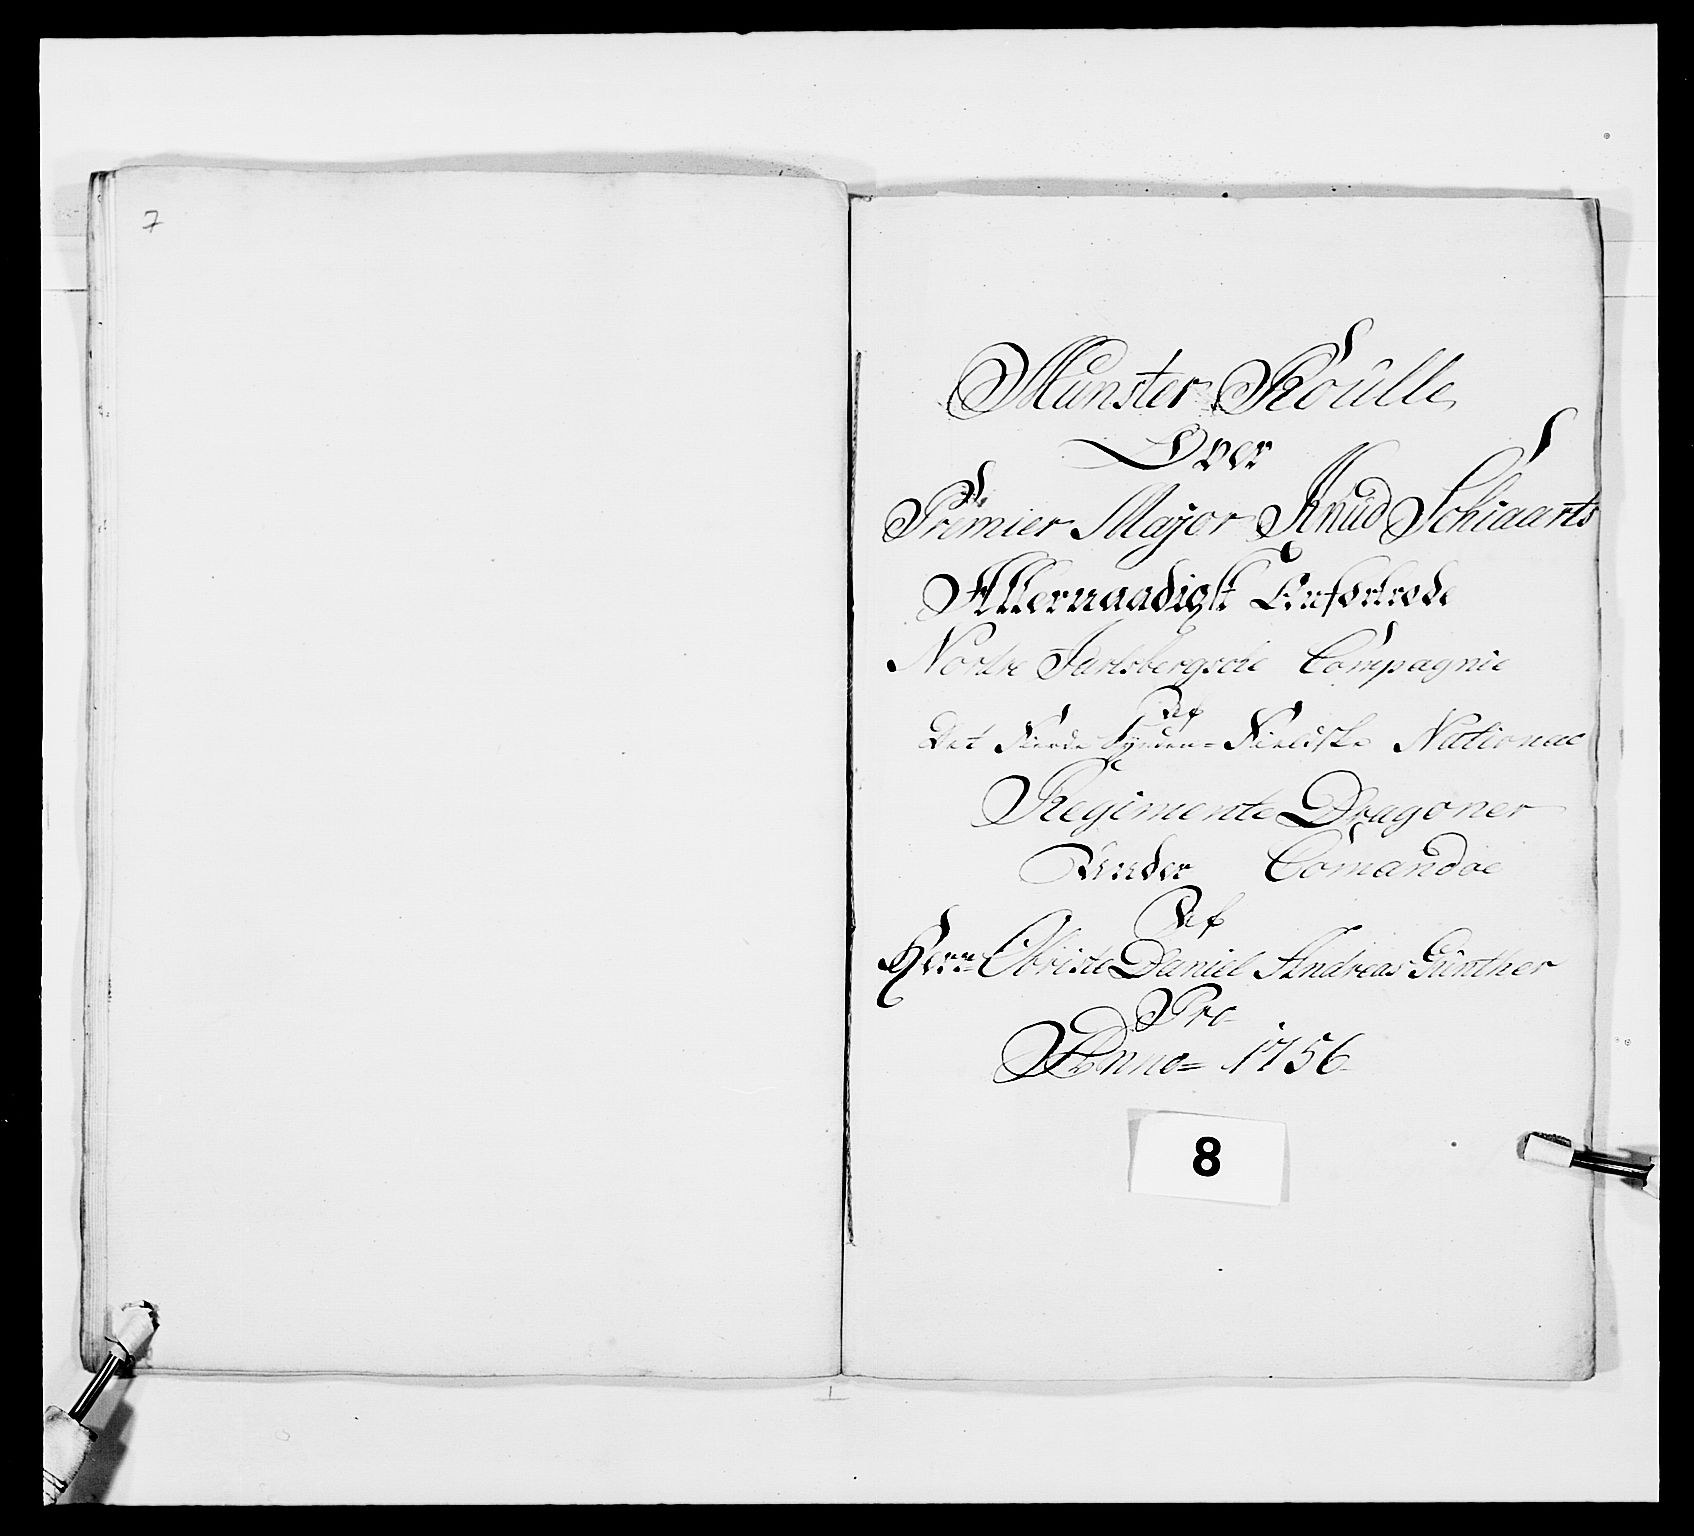 7
Munster Roulle
Over
Premier Major Knud Schiaarts
Allernaadigst Anfortrode
Nordre Jarlsbergsche Compagnie
Af
Det Fierde Synden=Fieldske National
Regimente Dragoner
Under Comandoe
Af
Herr Obriste Daniel Andreas Günther
Pro
Anno= 1756
8